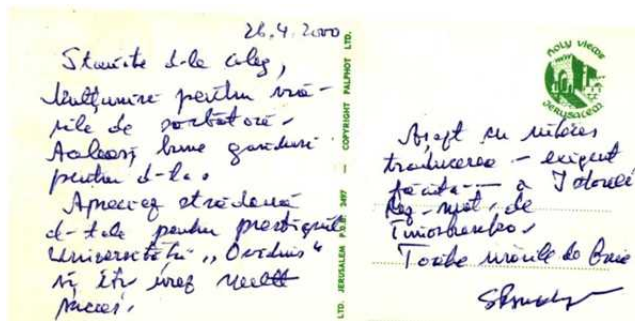 26.4.2000
Stimite d-le coleg,
Mulțumiri pentru urā-
rile de sărbători.
Aceleași bune gânduri
pentru d-ta.
Apreciez strădania
d-tale pentru prestigiul
Universității „Ovidius"
și îți urez mult
succes.
LTD. JERUSALEM P.O.B. 2497 — COPYRIGHT PALPHOT LTD.
HOLY VIEWS
JERUSALEM
Aștept cu interes
traducerea — exigent
făcută — a Istoriei
de
Timoshenko.
Toate urările de bine